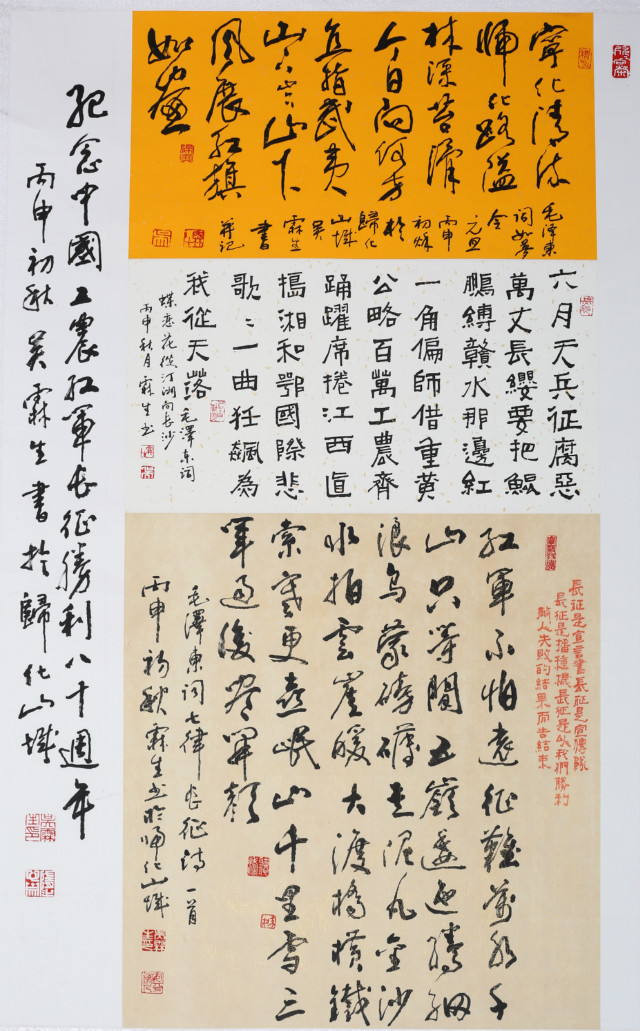 寧化清流
歸化路隘
林深苔滑
今日向何方
直指武夷
山下山下
風展紅旗
如畫
毛澤東
詞如夢
令元旦
丙申
初秋
於
歸化
山城
吳
霖生
書
并记
六月天兵征腐惡
萬丈長纓要把鯤
鵬縛贛水那邊紅
一角偏師借重黄
公略百萬工農齊
踊躍席捲江西直
搗湘和鄂國際悲
歌〻一曲狂飆為
我從天落 毛澤東詞
蝶恋花從汀洲向長沙
丙申秋月霖生书
長征是宣言書長征是宣傳隊
長征是播種機長征是以我們勝利
敵人失敗的結果而告結束
紅軍不怕遠征難萬水千
山只等閒五嶺逶迤騰細
浪烏蒙磅礴走泥丸金沙
水拍雲崖暖大渡橋横鐵
索寒更喜岷山千里雪三
軍過後盡開顏
毛澤東詞七律長征詩一首
丙申初秋霖生书於歸化山城
紀念中國工農紅軍長征勝利八十週年
丙申初秋吳霖生書於歸化山城